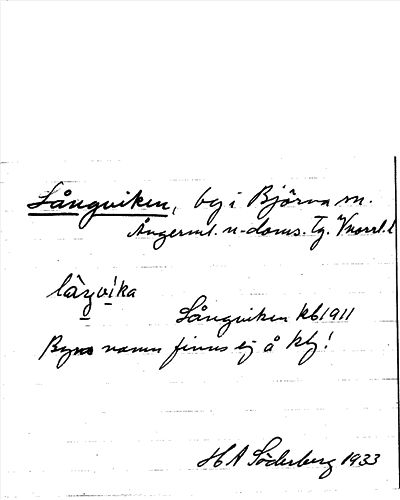 Långviken, by i Björna sn.
Ångerml. n. doms. Tg. Vnorrl. l
låŋvika
Långviken kb 1911
Byns namn finns ej å kb!
H A Söderberg 1933